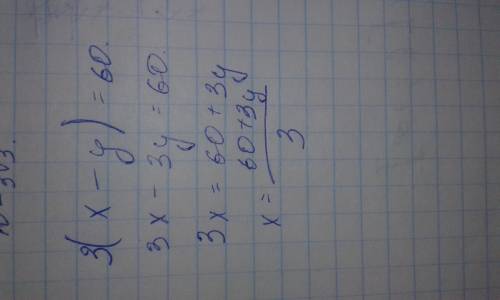 3(x - y) = 60.
3x - 3y = 60.
3x = 60 + 3y
x = \frac{60+3y}{3}